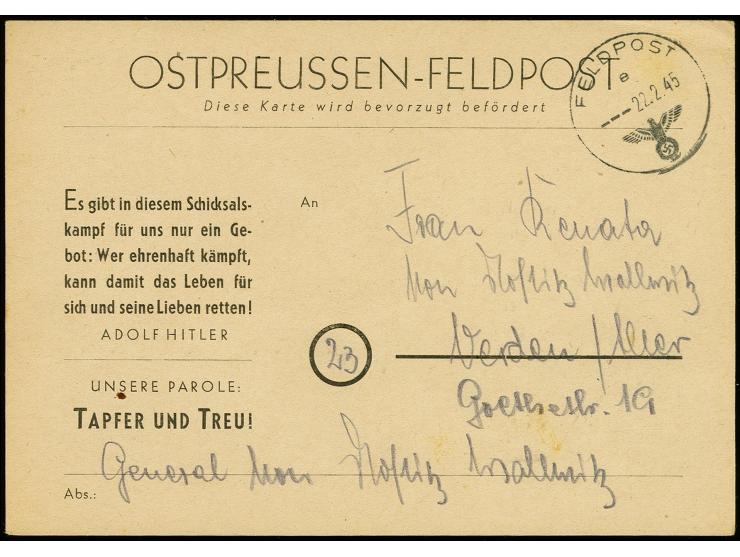 OSTPREUSSEN-FELDPOST
Diese Karte wird bevorzugt befördert
FELDPOST
e
22.2.45
Es gibt in diesem Schicksals-
kampf für uns nur ein Ge-
bot: Wer ehrenhaft kämpft,
kann damit das Leben für
sich und seine Lieben retten!
ADOLF HITLER
UNSERE PAROLE:
TAPFER UND TREU!
An
Frau Renata
von Nostitz Wallwitz
23
Verden / Aller
Goethestr. 19
Abs.: General von Nostitz Wallwitz